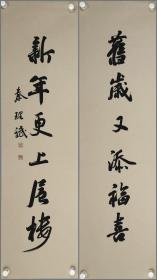 舊歲又添福喜
新年更上層樓
秦理斌